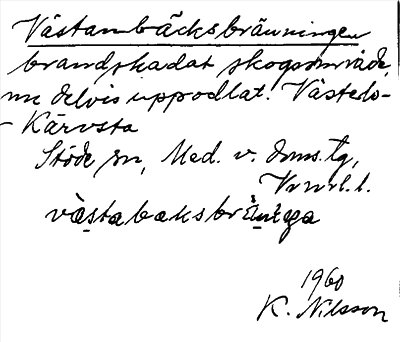 Västanbäcksbränningen
brandskadat skogsområde,
nu delvis uppodlat. Västerlo-
- Kärvsta
Stöde sn, Med. v. doms. tg,
Vnrl. l.
västabaksbräninga
1960
K. Nilsson